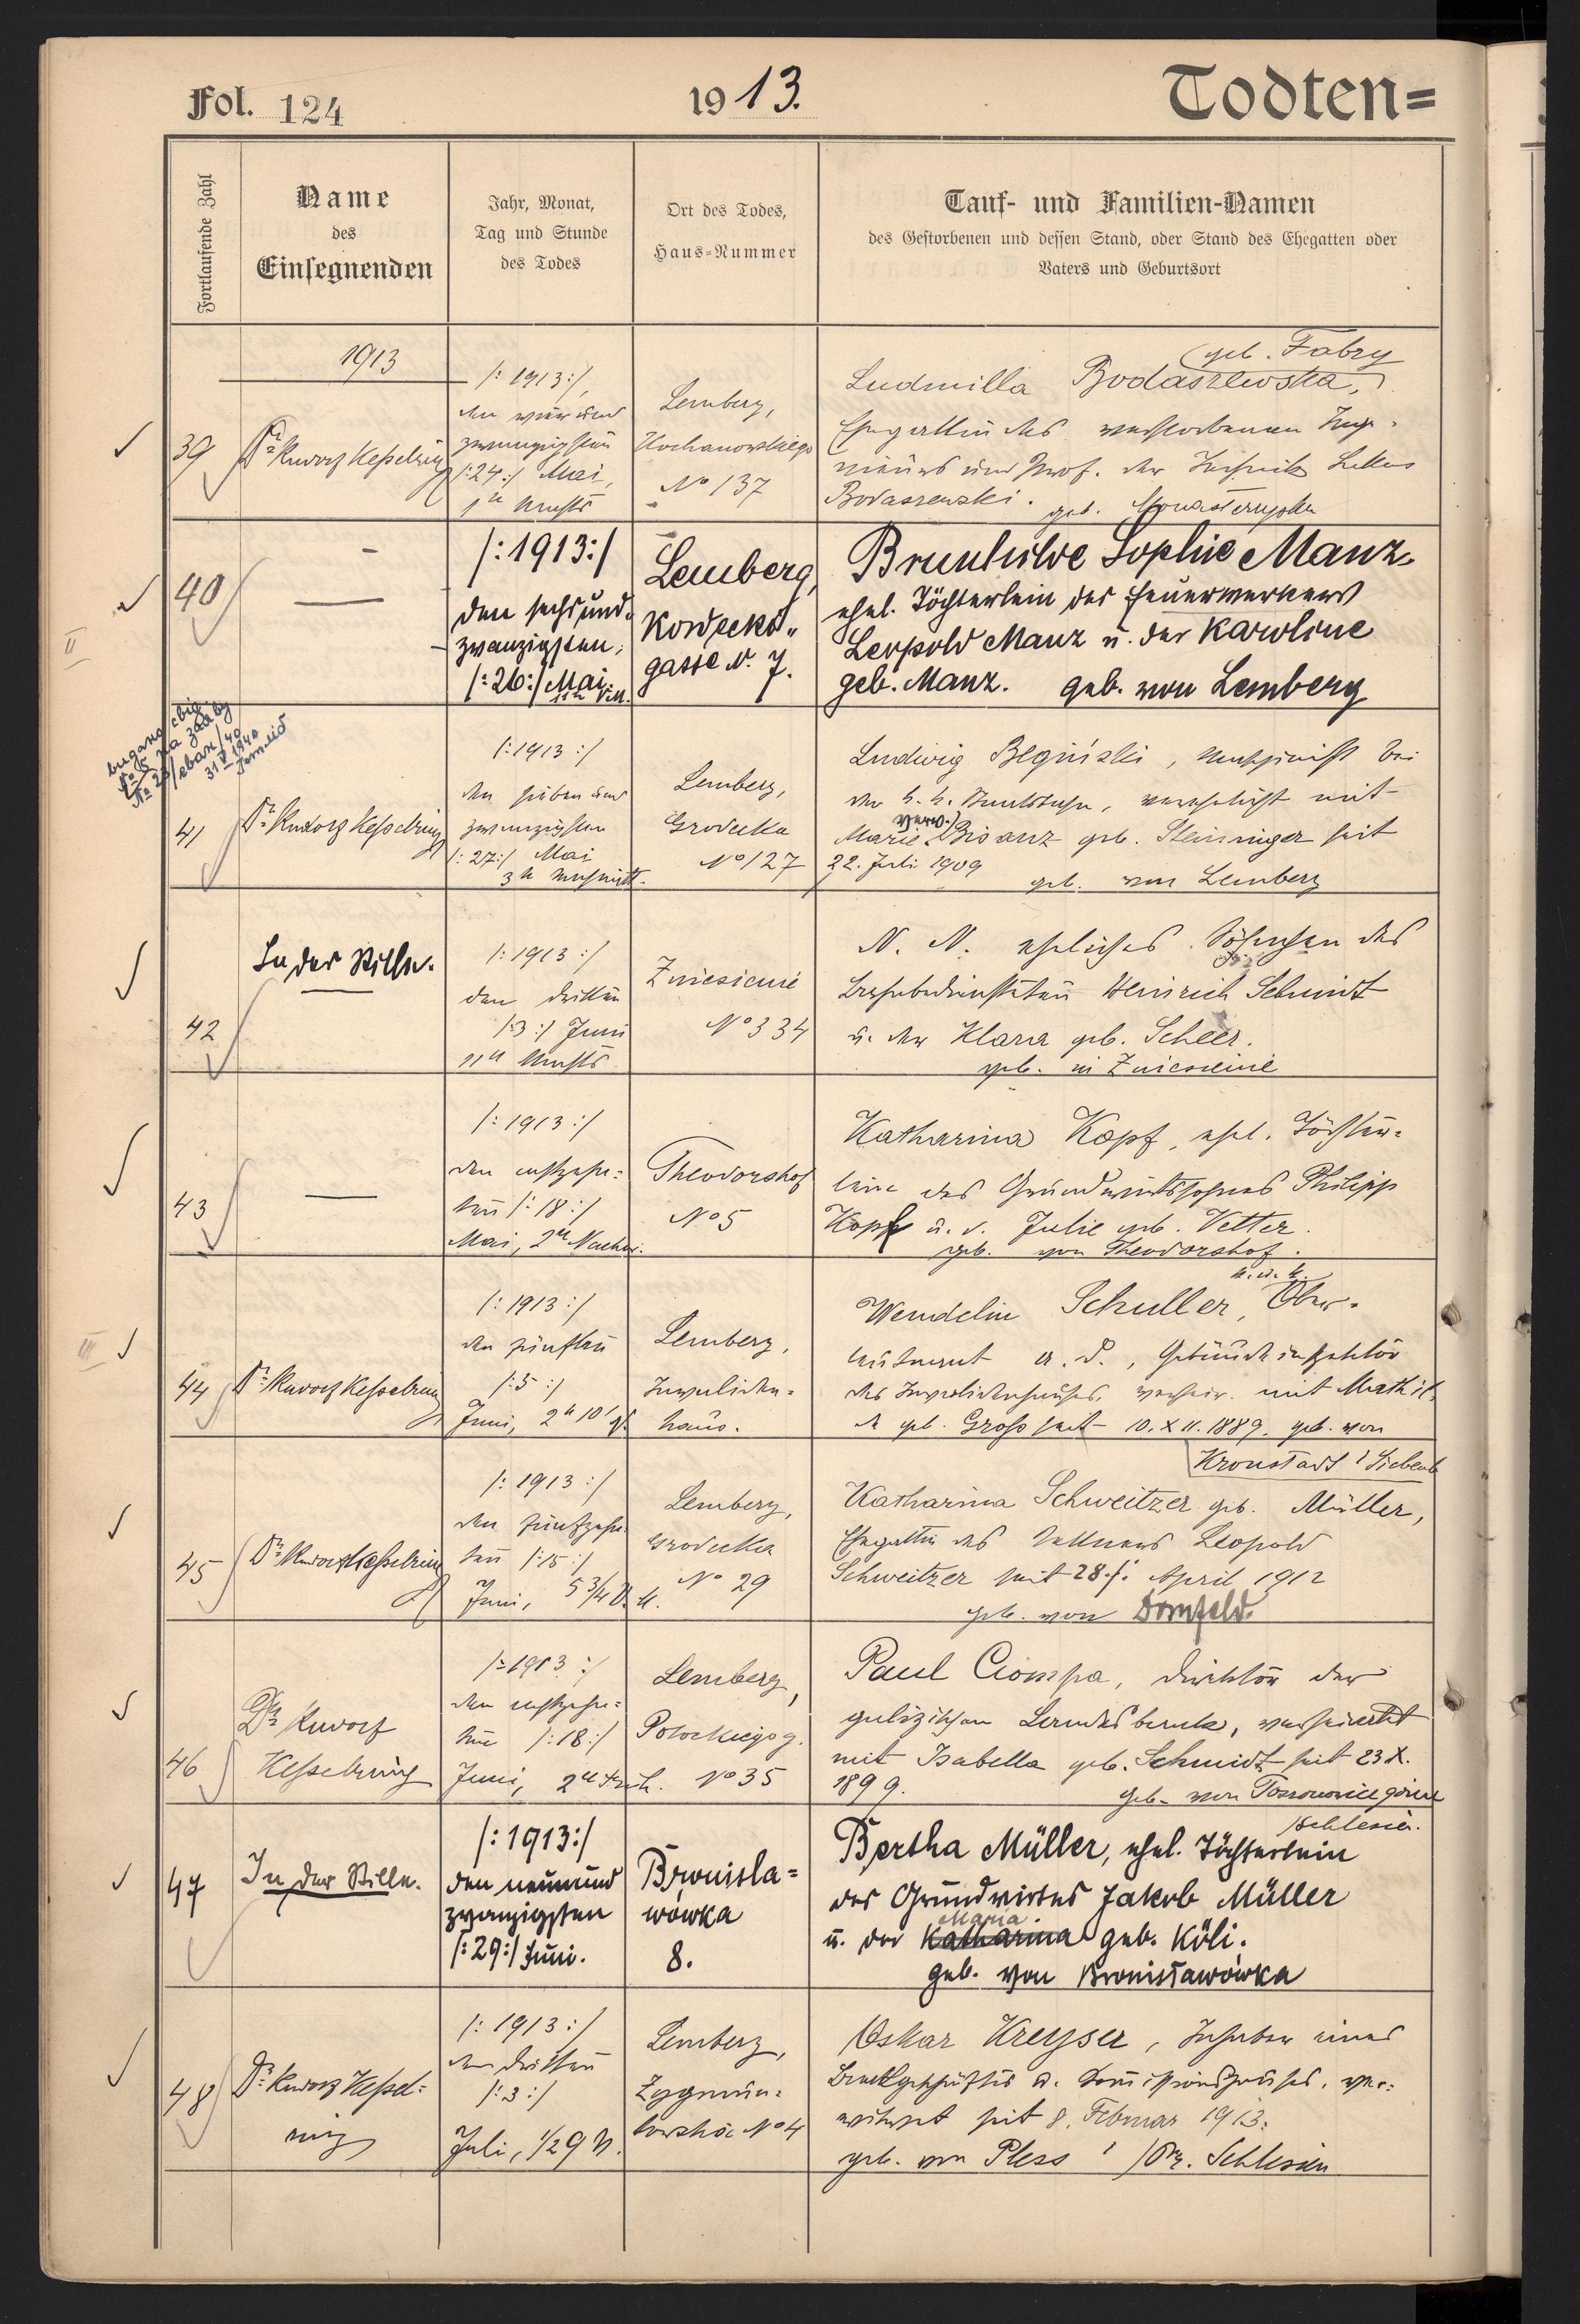 Fol. 124
1913.
Todten=
Fortlaufende Zahl
Name
des
Einsegnenden
Jahr, Monat,
Tag und Stunde
des Todes
Ort des Todes,
Haus-Nummer
Tauf- und Familien-Namen
des Gestorbenen und dessen Stand, oder Stand des Ehegatten oder
Vaters und Geburtsort
1913
39
Dr. Rudolf Kesselring
/: 1913 :/,
den vier und
zwanzigsten
/: 24 :/ Mai,
1 h Nachts
Lemberg,
Kochanowskiego
No 137
(geb. Fabry
Ludmilla Bodaszewska,
Ehegattin des verstorbenen Inge-
nieurs und Prof. der Technik Lukas
Bodaszewski. geb. Monasterzyska
40
—
/: 1913 :/
den sechsund-
zwanzigsten,
/: 26 :/ Mai.
Lemberg,
Kordecki-
gasse N. 7.
Brunhilde Sophie Manz.
ehel. Töchterlein des Feuerwerkers
Leopold Manz u. der Karoline
geb. Manz. geb. von Lemberg
31 V 1940
41
Dr. Rudolf Kesselring
/: 1913 :/
den sieben und
zwanzigsten
/: 27 :/ Mai
3 h nachmitt.
Lemberg,
Grodecka
No 127
Ludwig Beginski, Maschinist bei
der k. k. Staatsbahn, verehelicht mit
verw.
Marie Bisanz geb. Steininger seit
22. Juli 1909
geb. von Lemberg
42
In der Stille.
/: 1913 :/
den dritten
/: 3 :/ Juni
11 h Nachts
Zniesienie
No 334
N. N. eheliches Söhnchen des
Bahnbediensteten Heinrich Schmidt
u. der Klara geb. Scheer.
geb. in Zniesienie
43
—
/: 1913 :/
den achtzehn=
ten /: 18 :/
Mai, 2 h Nachm.
Theodorshof
No 5
Katharina Kopf, ehel. Töchter-
lein des Grundwirtssohnes Philipp
Kopf u. d. Julie geb. Vetter.
geb. von Theodorshof.
44
Dr. Rudolf Kesselring
/: 1913 :/
den fünften
/: 5 :/
Juni, 2 h 10'
Lemberg,
Invaliden-
haus.
k. u. k.
Wendelin Schuller, Ober-
leutnant a. D., Gebäudeinspektor
des Invalidenhauses, verheir. mit Mathil-
de geb. Gross seit 10. XII. 1889. geb. von
Kronstadt / Siebenb
45
Dr. Rudolf Kesselring
/: 1913 :/
den fünfzehn-
ten /: 15 :/
Juni, 5 3/4 V. M.
Lemberg,
Grodecka
No 29
Katharina Schweitzer geb. Müller,
Ehegattin des Kellners Leopold
Schweitzer seit 28./: April 1912
geb. von Dornfeld.
46
Dr. Rudolf
Kesselring
/: 1913 :/
den achtzehn=
ten /: 18 :/
Juni, 2 h Früh.
Lemberg,
Potockiego g.
No 35
Paul Ciompa, Direktor der
galizischen Landesbank, verheiratet
mit Isabella geb. Schmidt seit 23 X.
1899.
geb. von Toszonowice górne
/Schlesien.
47
In der Stille.
/: 1913 :/
den neunund
zwanzigsten
/: 29 :/ Juni.
Bronisla=
wówka
8.
Bertha Müller, ehel. Töchterlein
des Grundwirtes Jakob Müller
Maria
u. der Katharina geb. Köli.
geb. von Bronisławówka
48
Dr. Rudolf Kessel=
ring
/: 1913 :/
den dritten
/: 3 :/
Juli, 1/2 9 V.
Lemberg,
Zygmun-
towska No 4
Oskar Kreyser, Inhaber eines
Bankgeschäftes u. Komissionshauses, ver-
witwet seit 8. Februar 1913.
geb. von Pless / Pr. Schlesien